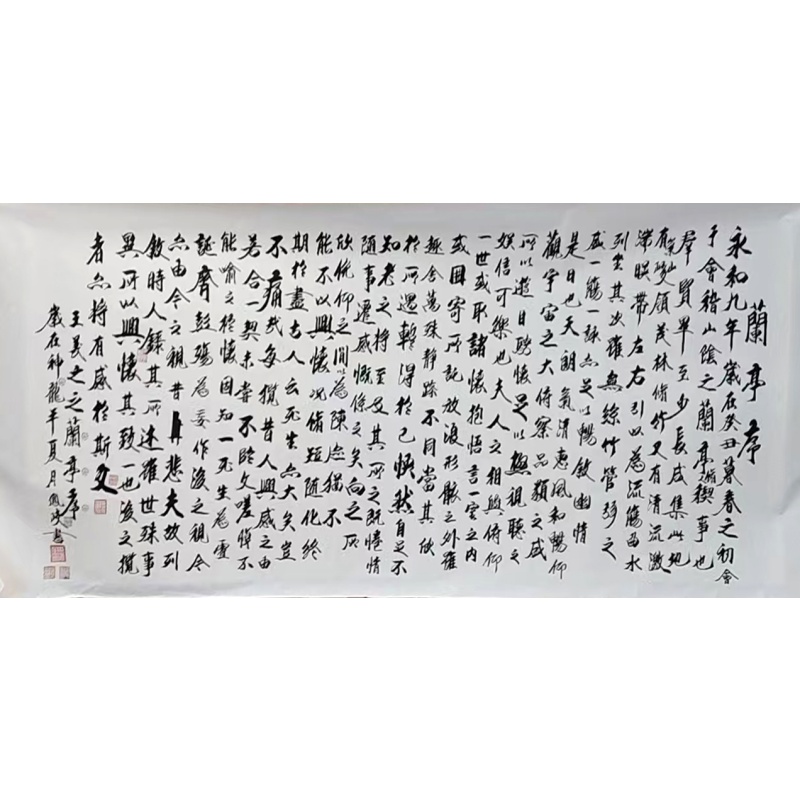 蘭亭序
永和九年歲在癸丑暮春之初會
于會稽山陰之蘭亭脩禊事也
群賢畢至少長咸集此地
有峻領茂林脩竹又有清流激
湍暎帶左右引以為流觴曲水
列坐其次雖無絲竹管弦之
盛一觴一詠亦足以暢敘幽情
是日也天朗氣清惠風和暢仰
觀宇宙之大俯察品類之盛
所以遊目騁懷足以極視聽之
娛信可樂也夫人之相與俯仰
一世或取諸懷抱悟言一室之內
或因寄所託放浪形骸之外雖
趣舍萬殊靜躁不同當其欣
於所遇暫得於己怏然自足不
知老之將至及其所之既惓情
隨事遷感慨係之矣向之所
欣俛仰之間以為陳迹猶不
能不以興懷況脩短隨化終
期於盡古人云死生亦大矣豈
不痛哉每攬昔人興感之由
若合一契未嘗不臨文嗟悼不
能喻之於懷固知一死生為虛
誕齊彭殤為妄作後之視今
亦由今之視昔悲夫故列
敘時人錄其所述雖世殊事
異所以興懷其致一也後之攬
者亦將有感於斯文
王羲之之蘭亭序
歲在神龍年夏月書